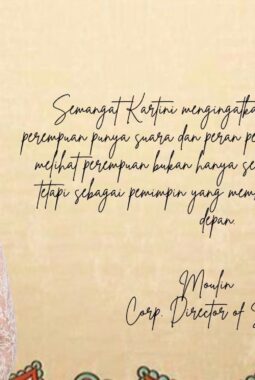 Semangat Kartini mengingatka
perempuan punya suara dan peran pe
melihat perempuan bukan hanya se
tetapi sebagai pemimpin yang mem
depan.
Moulin
Corp. Director of S